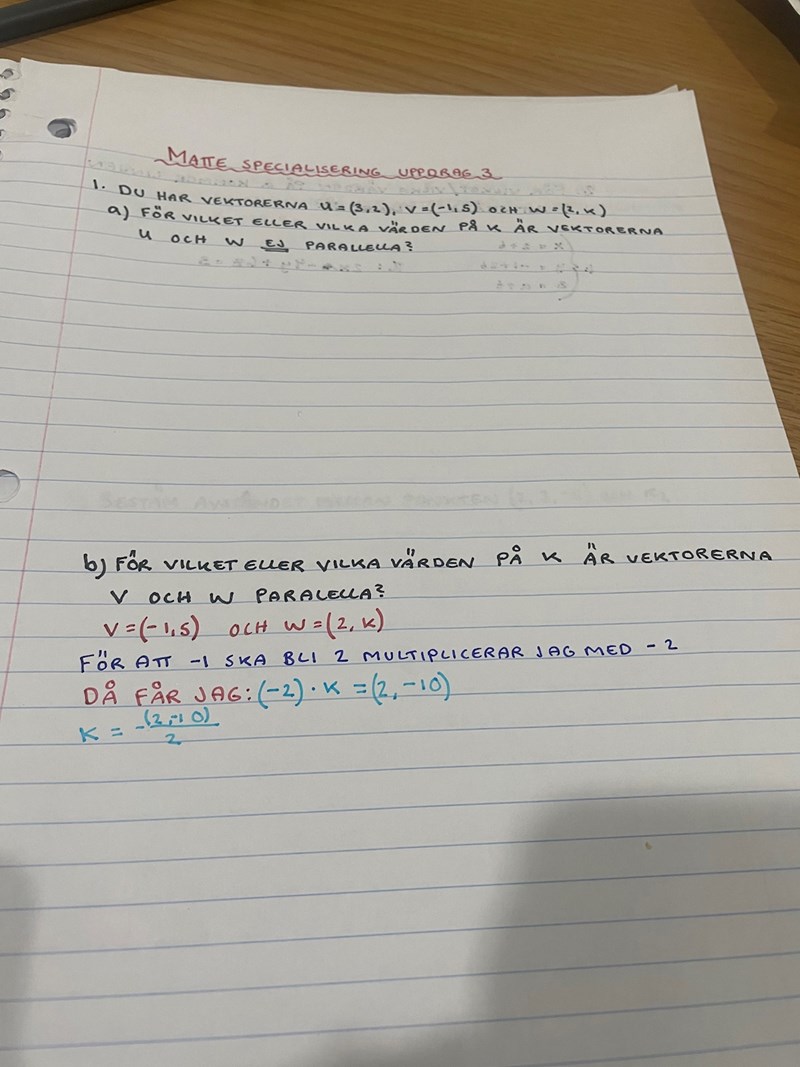 MATTE SPECIALISERING UPPDRAG 3
1. DU HAR VEKTORERNA U=(3,2), V=(-1,5) OCH W=(2,K)
a) FÖR VILKET ELLER VILKA VÄRDEN PÅ K ÄR VEKTORERNA
U OCH W EJ PARALLELLA?
b) FÖR VILKET ELLER VILKA VÄRDEN PÅ K ÄR VEKTORERNA
V OCH W PARALELLA?
V=(-1,5) OCH W=(2,K)
FÖR ATT -1 SKA BLI 2 MULTIPLICERAR JAG MED -2
DÅ FÅR JAG: (-2)·K=(2,-10)
K = -(2,-10)/2